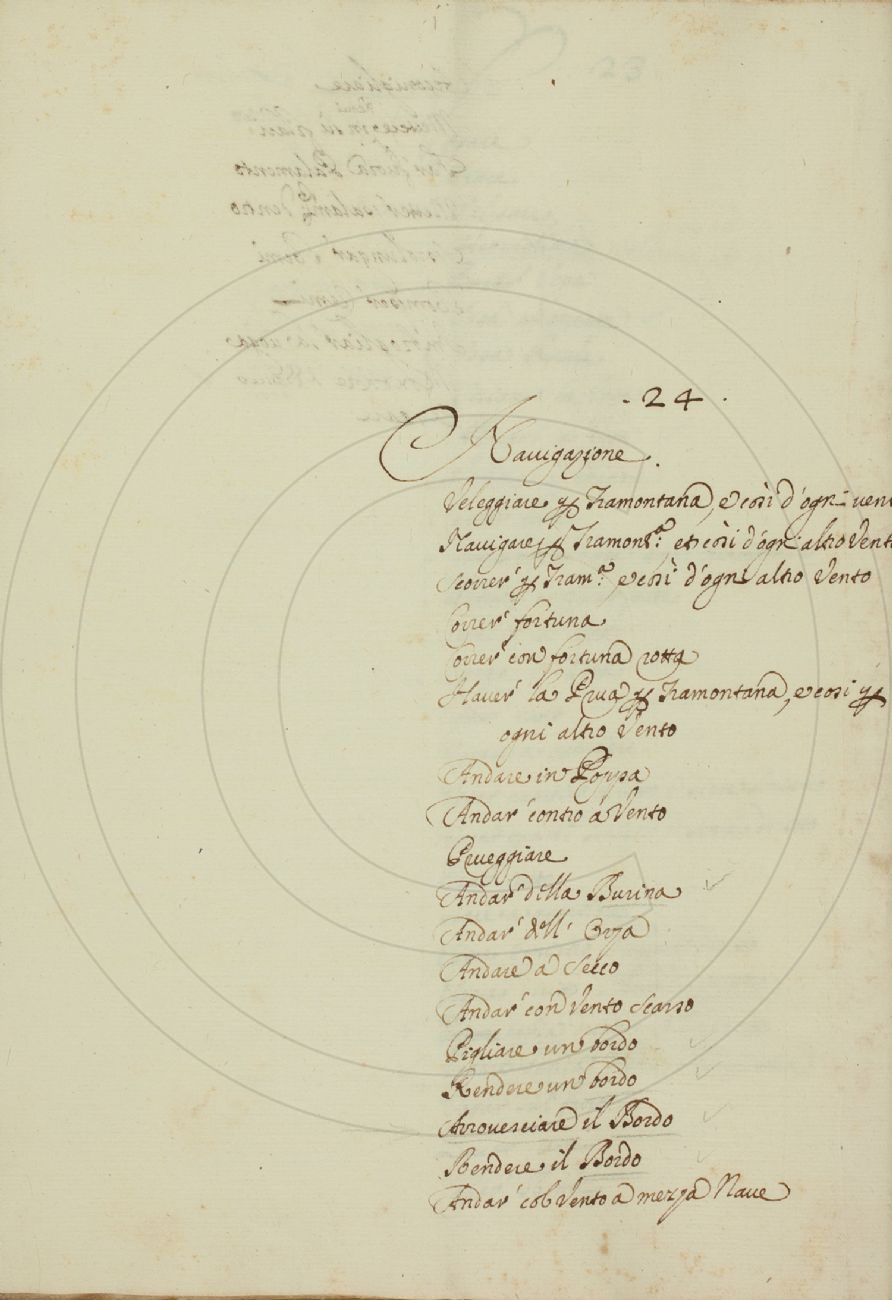 · 24 ·
Navigazione.
Veleggiare p Tramontana, e così d'ogni vent
Navigare p Tramont.ª et così d'ogn altro Vent
Scorrer' p Tram.ª e così d'ogni altro Vento
Correr' fortuna
Correr' con fortuna rotta
Haver' la Prua p Tramontana, e cosi p
ogni altro Vento
Andare in Poppa
Andar' contro à Vento
Prueggiare
Andar' della Burina
Andar' dell' Orza
Andare à Secco
Andar' con Vento Scarso
Pigliare un bordo
Rendere un bordo
Arrovesciare il Bordo
Rendere il Bordo
Andar' col Vento à mezza Nave